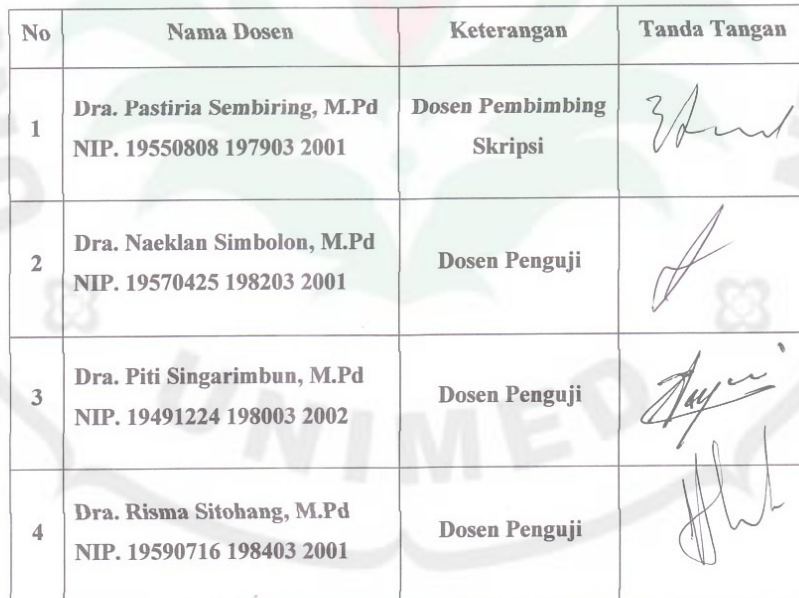 No Nama Dosen Keterangan Tanda Tangan
1 Dra. Pastiria Sembiring, M.Pd
NIP. 19550808 197903 2001
Dosen Pembimbing
Skripsi
2 Dra. Naeklan Simbolon, M.Pd
NIP. 19570425 198203 2001
Dosen Penguji
3 Dra. Piti Singarimbun, M.Pd
NIP. 19491224 198003 2002
Dosen Penguji
4 Dra. Risma Sitohang, M.Pd
NIP. 19590716 198403 2001
Dosen Penguji
UNIMED